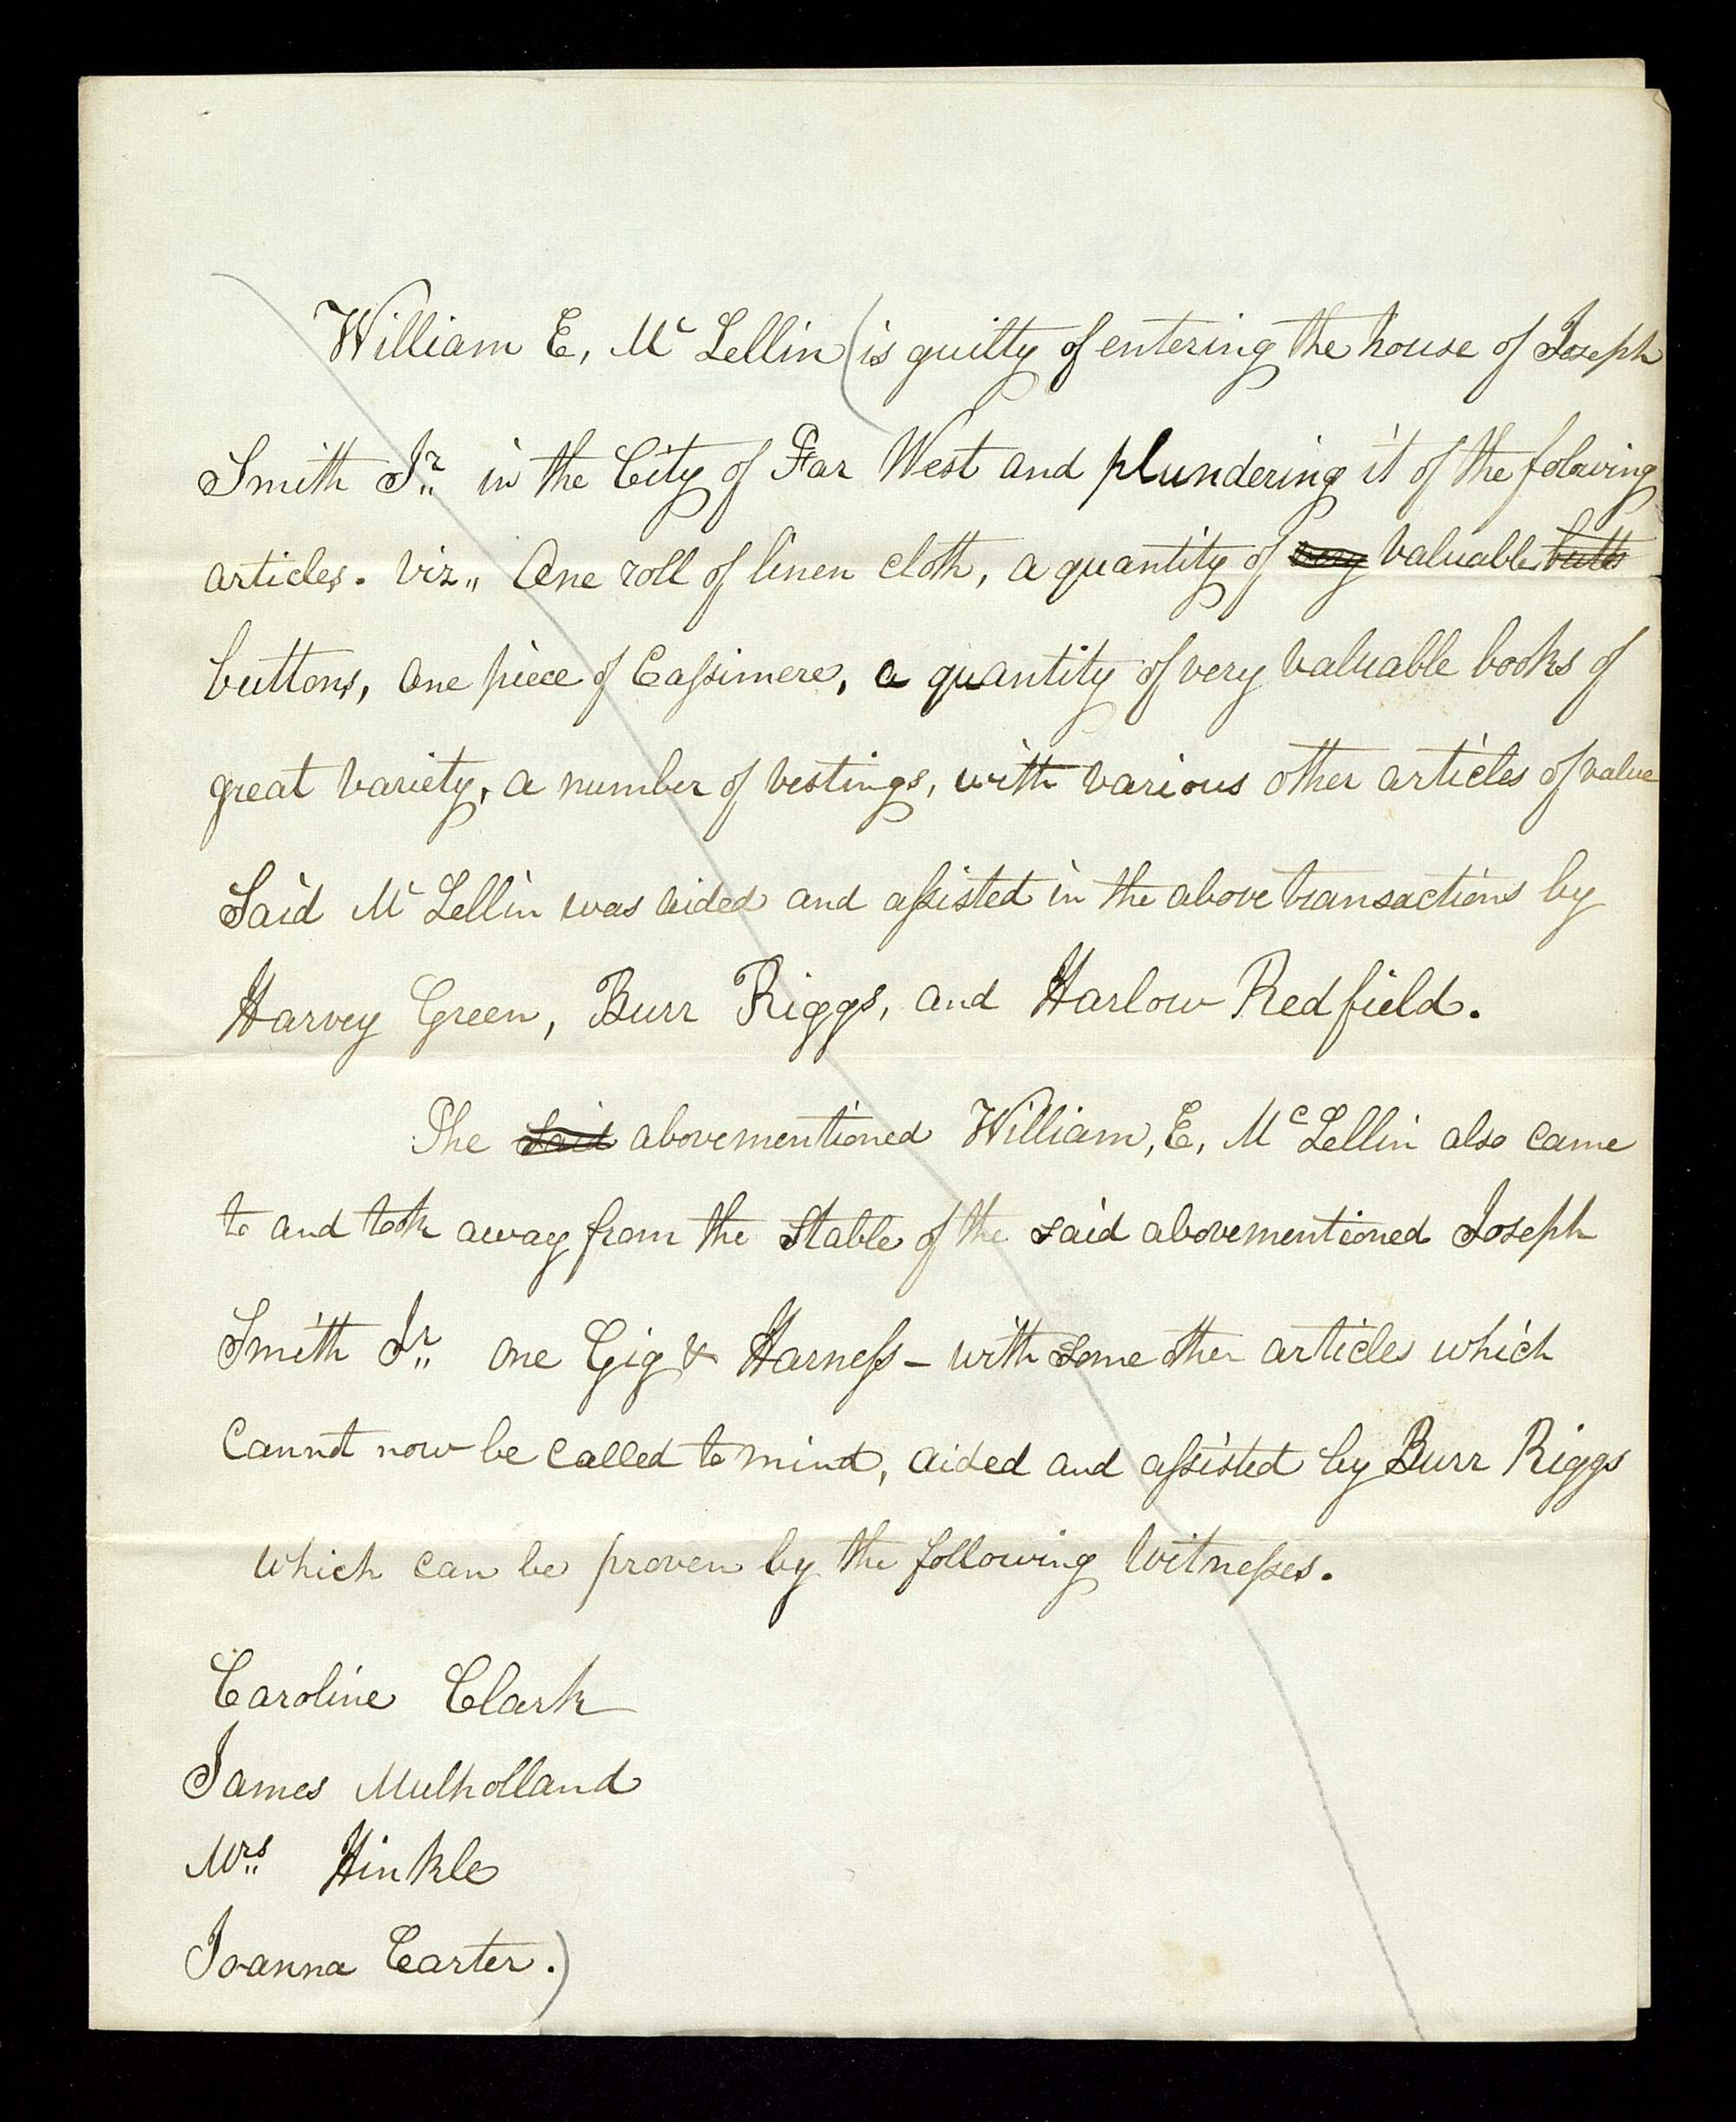 William E, Mc Lellin (is guilty of entering the house of Joseph
Smith Jr. in the City of Far West and plundering it of the folowing
articles. viz,, One roll of linen cloth, a quantity of very valuable butts
buttons, one piece of Cassimere, a quantity of very valuable books of
great variety, a number of vestings, with various other articles of value
Said Mc Lellin was aided and assisted in the above transactions by
Harvey Green, Burr Riggs, and Harlow Redfield.
The said abovementioned William, E, Mc Lellin also came
to and took away from the stable of the said abovementioned Joseph
Smith Jr. one Gig & Harness – with some other articles which
cannot now be called to mind, aided and assisted by Burr Riggs
which can be proven by the following witnesses.
Caroline Clark
James Mulholland
Mrs. Hinkle
Joanna Carter.)